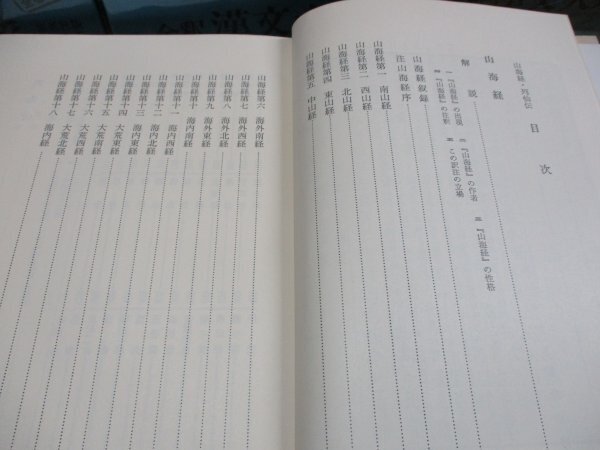 山海経・列仙伝
目次
山海経
解説
一『山海経』の出現 二『山海経』の作者 三『山海経』の性格
四『山海経』の注釈 五 この訳注の立場
山海経叙録
注山海経序
山海経第一 南山経
山海経第二 西山経
山海経第三 北山経
山海経第四 東山経
山海経第五 中山経
山海経第六 海外南経
山海経第七 海外西経
山海経第八 海外北経
山海経第九 海外東経
山海経第十 海内南経
山海経第十一 海内西経
山海経第十二 海内北経
山海経第十三 海内東経
山海経第十四 大荒東経
山海経第十五 大荒南経
山海経第十六 大荒西経
山海経第十七 大荒北経
山海経第十八 海内経